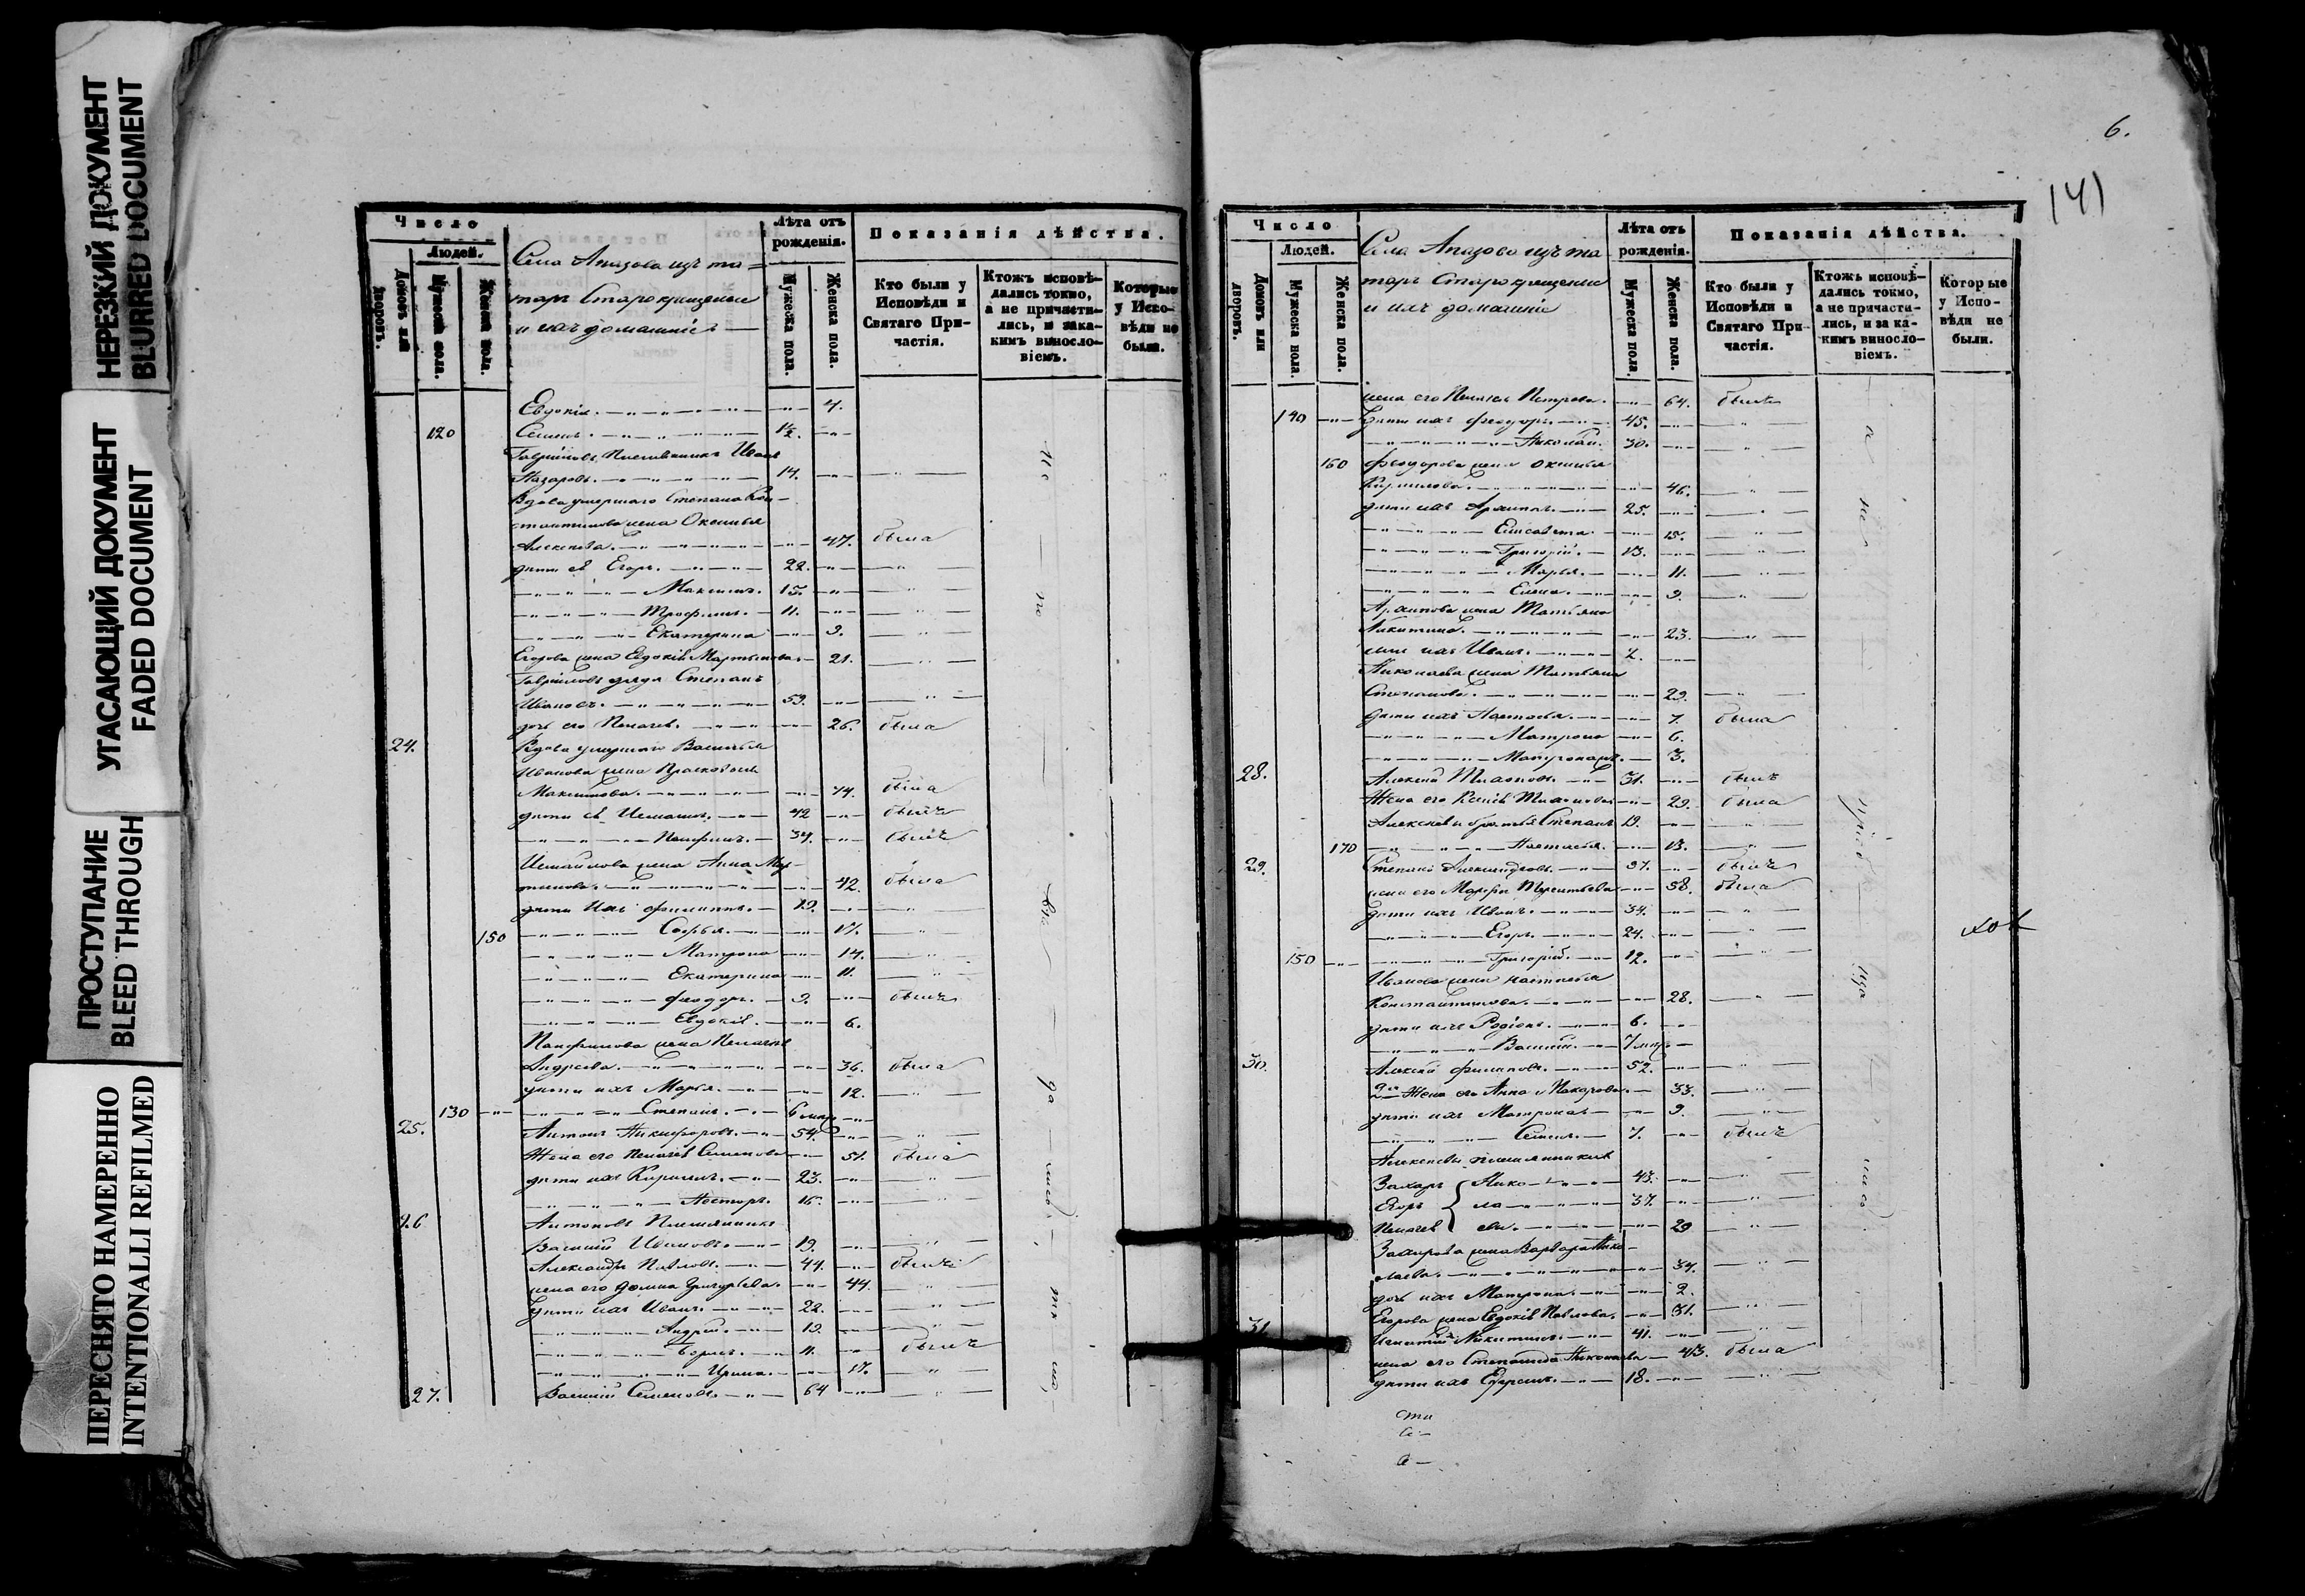 НЕРЕЗКИЙ ДОКУМЕНТ
BLURRED DOCUMENT
УГАСАЮЩИЙ ДОКУМЕНТ
FADED DOCUMENT
ПРОСТУПАНИЕ
BLEED THROUGH
ПЕРЕСНЯТО НАМЕРЕННО
INTENTIONALLI REFILMED
Число
Людей.
Домовъ или дворовъ.
Мужеска пола.
Женска пола.
Села Апазова изъ та=
таръ Старокрещеные
и ихъ домашніе
Лѣта отъ рожденія.
Мужеска пола.
Женска пола.
Показанія дѣйства.
Кто были у Исповѣди и Святаго Причастія.
Ктожъ исповѣ-
дались токмо,
а не причасти-
лись, и за ка-
кимъ виносло-
віемъ.
Которые
у Испо-
вѣди не
были.
Евдокія. 4.
120 Семенъ. 1½.
Гавріиловъ племянникъ Иванъ
Назаровъ. 14.
Вдова умершаго Степана Кон-
стантинова жена Оксинья
Алексѣева. 47. была
дѣти ея Егоръ. 22.
Максимъ. 15.
Трофимъ. 11.
Екатерина 9.
Егорова жена Евдокія Мартынова. 21.
Гавріиловъ дядя Степанъ
Ивановъ. 59.
дочь его Пелагея. 26. была
24. Вдова умершаго Василья
Иванова жена Прасковья
Максимова. 74. была
дѣти ея Исмаилъ. 42 былъ
Панфилъ. 34. былъ
Исмаилова жена Анна Мар-
тынова. 42. была
дѣти ихъ Филиппъ. 19.
150 Софья. 17.
Матрона 14.
Екатерина 11.
Феодоръ. 9. былъ
Евдокія. 6.
Панфилова жена Пелагея
Андреева. 36. была
дѣти ихъ Марья. 12.
130 Степанъ. 6 мѣс.
25. Антонъ Никифоровъ. 54.
Жена его Пелагея Семенова 51. была
дѣти ихъ Кириллъ. 23.
Несторъ. 16.
26 Антоновъ Племянникъ
Василій Ивановъ. 19.
Александръ Павловъ. 44. былъ
жена его Домна Григорьева. 44.
дѣти ихъ Иванъ. 22.
Андрей. 19.
Борисъ. 11. былъ
Ирина. 17.
27. Василій Семеновъ. 64
6.
141
Число
Людей.
Домовъ или дворовъ.
Мужеска пола.
Женска пола.
Села Апазова изъ та
таръ Старокрещеные
и ихъ домашніе
Лѣта отъ рожденія.
Мужеска пола.
Женска пола.
Показанія дѣйства.
Кто были у Исповѣди и Святаго Причастія.
Ктожъ исповѣ-
дались токмо,
а не причасти-
лись, и за ка-
кимъ виносло-
віемъ.
Которые
у Испо-
вѣди не
были.
жена его Пелагея Петрова. 64. была
140 дѣти ихъ Феодоръ. 45.
Николай. 30.
160 Феодорова жена Оксинья
Кириллова. 46.
дѣти ихъ Архипъ. 25.
Елисавета 15.
Григорій. 13.
Марья. 11.
Елена. 9.
Архипова жена Татьяна
Никитина. 23.
сынъ ихъ Иванъ. 2.
Николаева жена Татьяна
Степанова. 29.
дѣти ихъ Настасья. 7. была
Матрона 6.
3.
28. Алексѣй 31. былъ
Жена его Ксенія 29. была
Алексѣевы братья Степанъ 19.
170 Настасья. 13.
29. Степанъ Александровъ. 57. былъ
жена его Марфа Терентьева 58. была
дѣти ихъ Иванъ. 34.
Егоръ. 24.
150 Григорій. 12.
Иванова жена Настасья
Константинова. 28.
дѣти ихъ Родіонъ. 6.
Василій. 7 мѣс.
30. Алексѣй Филиповъ. 52.
2я Жена его Анна Макарова. 33.
дѣти ихъ Матрона 9.
Семенъ. 7. былъ
Алексѣевы племянники
Захаръ Нико 43.
Егоръ ла 37.
Пелагея евы. 29
Захарова жена Варвара Нико-
лаева. 34.
дочь ихъ Матрона. 2.
Егорова жена Евдокія Павлова. 31.
31. Игнатій Никитинъ. 41.
жена его Степанида Николаева 43. была
дѣти ихъ Ефремъ. 18.